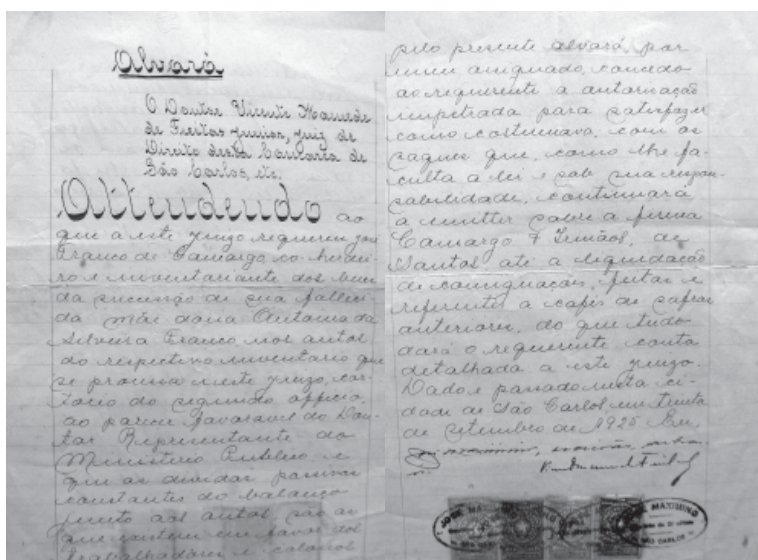 Alvará
O Doutor Vicente Mamede
de Freitas Junior, juiz de
Direito desta Comarca de
São Carlos, etc.
Attendendo ao
que a este juizo requereu José
Franco de Camargo, co-herdei-
ro e inventariante dos bens
da sucessão de sua falleci-
da mãe dona Antonia da
Silveira Franco nos autos
do respectivo inventario que
se processa neste juizo, car-
torio do segundo officio,
ao parecer favoravel do Dou-
tor Representante do
Ministerio Publico e
que as dividas passivas
constantes do balanço
junto aos autos, são as
que existem em favor dos
trabalhadores e colonos
pelo presente alvará, por
mim assignado, concedo
ao requerente a autorisação
impetrada para satisfazer
como costumava, com os
saques que, como lhe fa-
culta a lei e sob sua respon-
sabilidade, continuará
a emittir sobre a firma
Camargo & Irmãos, de
Santos até a liquidação
de consignações, feitas e
referentes a cafés de safras
anteriores, do que tudo
dará o requerente conta
detalhada a este juizo.
Dado e passado nesta ci-
dade de São Carlos, em trinta
de setembro de 1925. Eu,
escrivão,
JOSÉ MAXIMINO
SÃO CARLOS
JOSÉ MAXIMINO
SÃO CARLOS